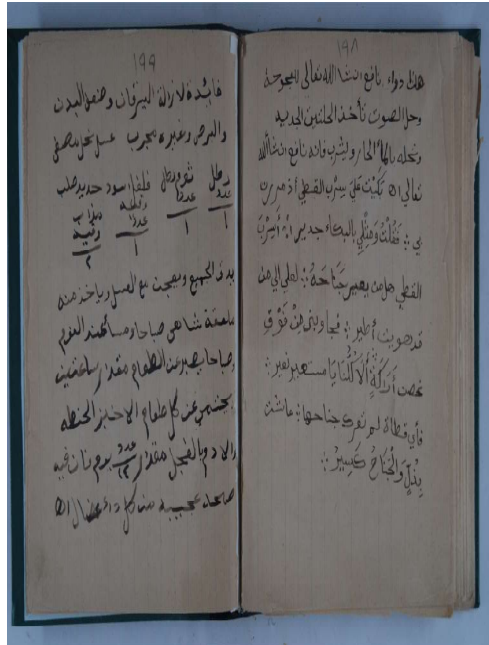 ١٩٨
هذا دواء نافع انشا الله تعالى للبحوحة
وحل الصوت تأخذ الحلتيت الجديد
وتحله بالماء الحار ويشرب فانه نافع انشا الله
تعالى اه بكيت على سرب القطى اذ مررن
بي فقلت ومثلي بالبكاء جدير أسرب
القطى هل من يعير جناحه لعلي الى من
قد هويت أطير فجاوبنني من فوق
غصن أراكة ألا كلنا يا مستعير نعير
فأي قطاة لم تعرك جناحها عاشت
بذل والجناح كسير
١٩٩
فائدة لازالة اليرقان وضعف البدن
والبرص وغيره مجرب عسل نحل مصفى
رطل
عدد
١
ثوم
عدد
١
فلفل اسود
عدد
١
حديد صلب
٢
يدق الجميع ويعجن مع العسل وياخذ منه
ملعقة شاهي صباحا ومساء عند النوم
وصباحا يصبر عن الطعام مقدار ساعتين
يحتمي عن كل طعام الا خبز الحنطه
والادم بالفجل مقدار عدد يوم
عجيبه من كل داء عضال اه